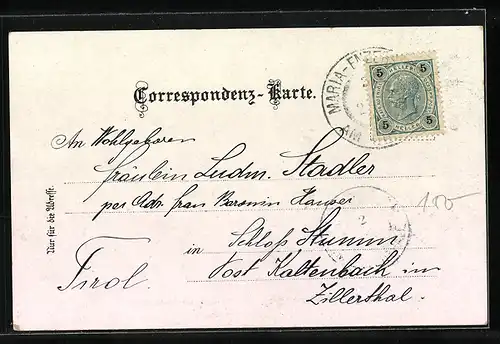 Correspondenz-Karte.
MARIA-ENZE
AM
5 HELLER 5
5 HELLER 5
An Wohlgeboren
Fräulein Ludm. Stadler
per Adr. Frau Baronin Hauser
in Schloß Stumm
Post Kaltenbach im
Zillerthal.
Tirol.
Nur für die Adresse.
2
100-